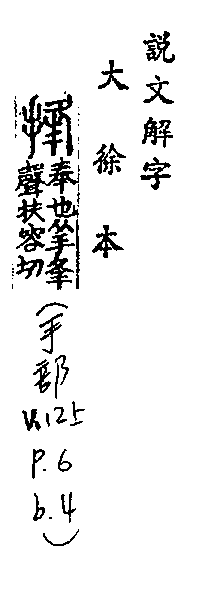 説文解字
大徐本
捀
奉也从手夆
聲扶容切
(手部
V.12上
P.6
b.4)